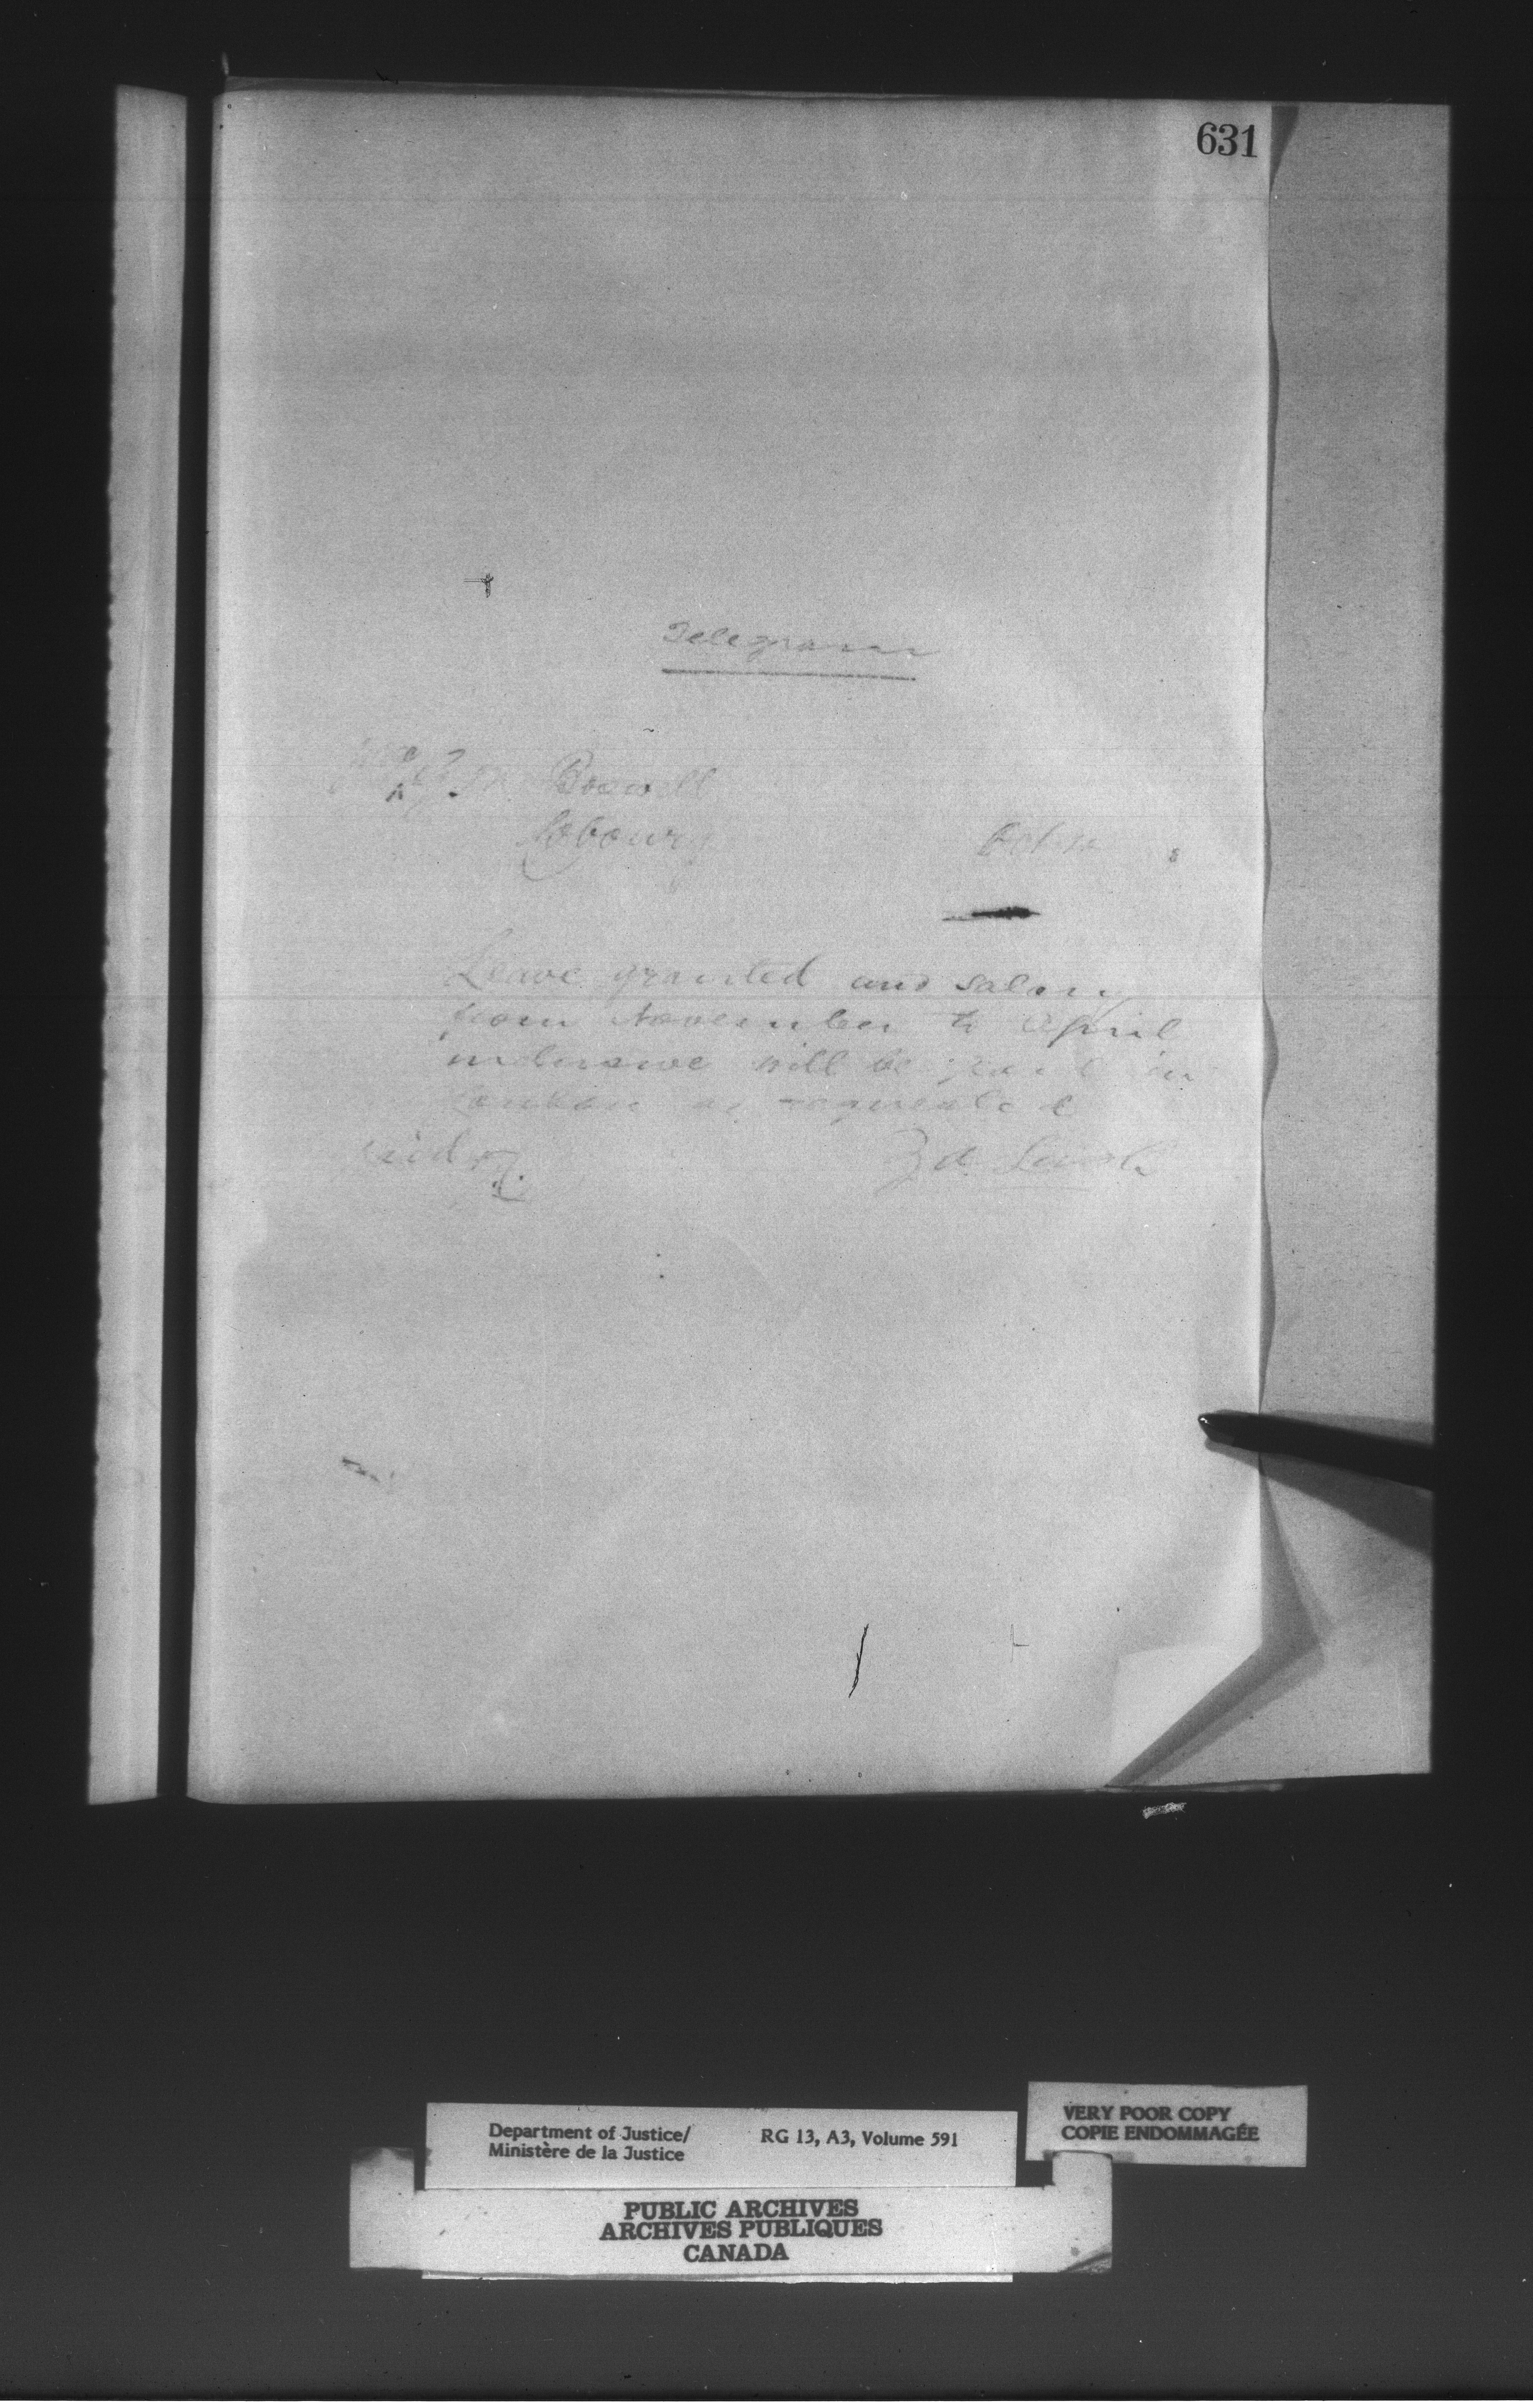 631
Telegram
Boswell
Cobourg
Oct
Leave granted and salary
from November to April
inclusive will be paid in
London as requested
Z A Lash
Department of Justice/
Ministère de la Justice
RG 13, A3, Volume 591
VERY POOR COPY
COPIE ENDOMMAGÉE
PUBLIC ARCHIVES
ARCHIVES PUBLIQUES
CANADA